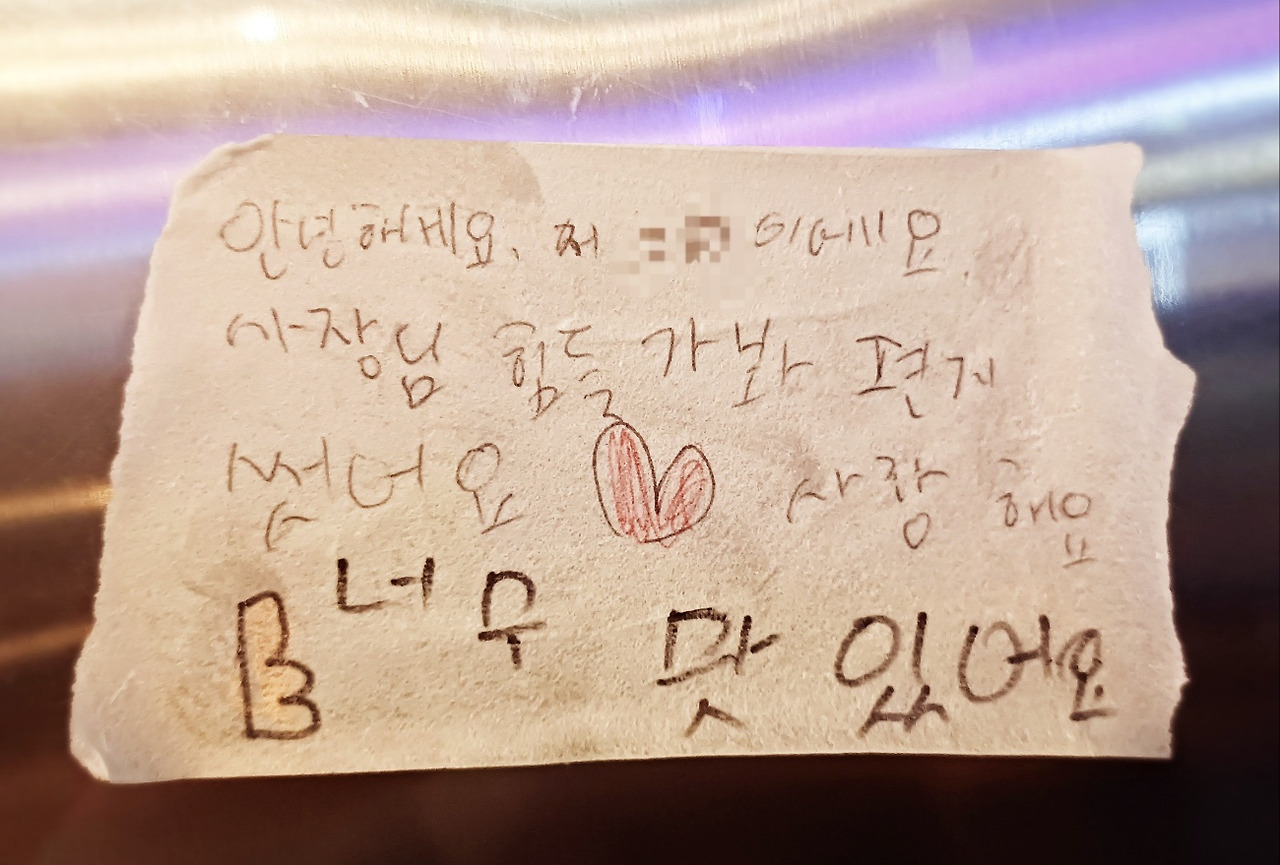 안녕하세요. 저 이에요.
사장님 힘들 가봐 편지
썼어요 사랑해요
너무 맛 있어요